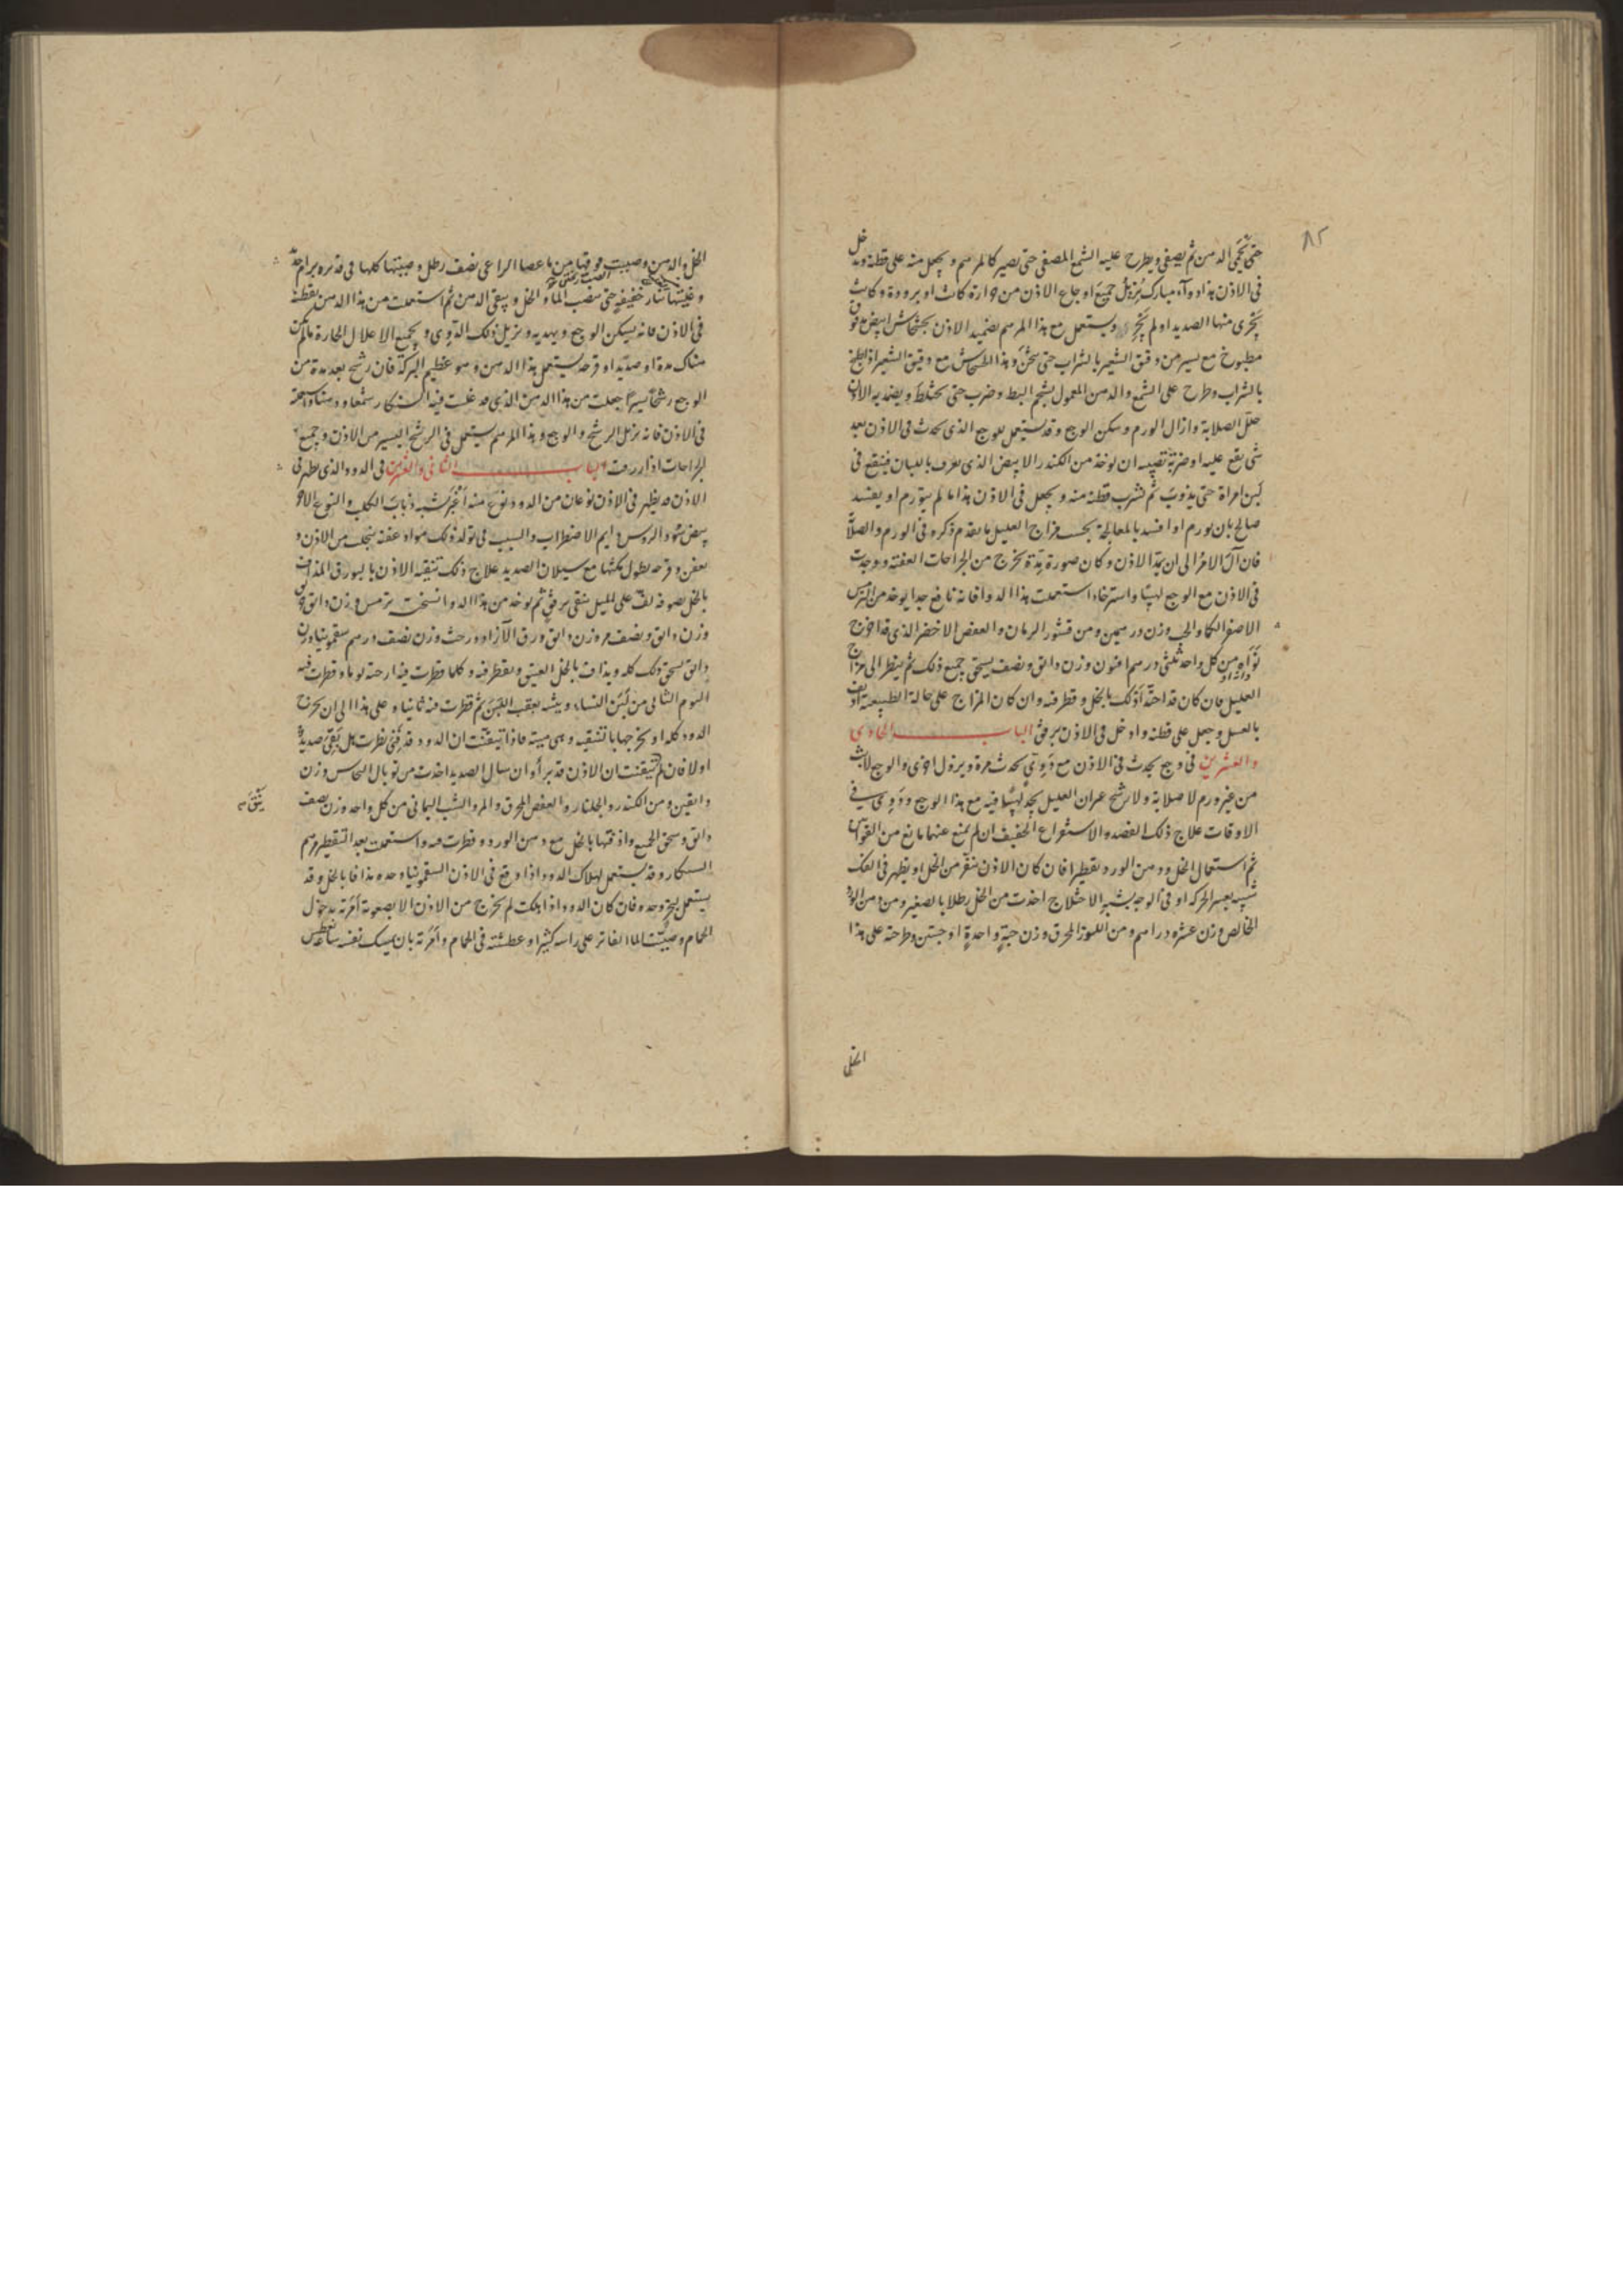 ٨٢
حتى تحمى الدهن ثم يصفى ويطرح عليه الشمع المصفى حتى يصير كالمرهم ويجعل منه على قطنة ويدخل
فى الاذن هذا دواء مبارك يزيل جميع اوجاع الاذن من حرارة كانت او برودة وكانت
يجرى منها الصديد او لم يجر ويستعمل مع هذا المرهم تضميد الاذن بخشخاش ابيض مدقوق
مطبوخ مع يسير من دقيق الشعير بالشراب حتى يثخن وهذا الخشخاش مع دقيق الشعير اذا طبخ
بالشراب وطرح على الشمع والدهن المعمول بشحم البط وضرب حتى يختلط ويضمد به الاذن
حلل الصلابة وازال الورم وسكن الوجع وقد يستعمل للوجع الذى يحدث فى الاذن بعد
شى يقع عليه او ضربة تصيبه ان يوخذ من الكندر الابيض الذى يعرف باللبان فينقع فى
لبن امراة حتى يذوب ثم تشرب قطنة منه ويجعل فى الاذن هذا ما لم يتورم او يفسد
صالح بان يورم او افسد بالمعالجة بحسب مزاج العليل ما تقدم ذكره فى الورم والصلابة
فان آل الامر الى ان تمد الاذن وكان صورة مدة تخرج من الجراحات العفنة ووجدت
فى الاذن مع الوجع لهيبا واسترخاء استعملت هذا الدواء فانه نافع جدا يوخذ من الترمس
الاصفر الكاوالجى وزن درهمين ومن قشور الرمان والعفص الاخضر الذى قد اخرج
نواه من كل واحد ثلثى درهم افيون وزن دانق ونصف يسحق جميع ذلك ثم ينظر الى مزاج
العليل فان كان قد احتد اذلك بالخل وقطر فيه وان كان المزاج على حاله الطبيعية اذيف
بالعسل وجعل على قطنة وادخل فى الاذن برفق الباب الحادى
والعشرين فى وجع يحدث فى الاذن مع دوى يحدث مرة ويزول اخرى والوجع لابث
من غير ورم لا صلابة ولا رشح غير ان العليل يجد لهيبا فيه مع هذا الوجع ودوى فى
الاوقات علاج ذلك الفصد والاستفراغ الخفيف ان لم يمنع عنهما مانع من القوة
ثم استعمال الخل ودهن الورد تقطيرا فان كان الاذن تنفر من الخل او يظهر فى الفك
شبيه بعسر الحركة او فى الوجه يشبه الاختلاج اخذت من الخل رطلا بالصغير ومن دهن الورد
الخالص وزن عشره دراهم ومن اللوز المحرق وزن حبة واحدة او حبتين وطرحته على هذا
الخل
الخل والدهن وصببت فوقها من ماء عصا الراعى نصف رطل وصببتها كلها فى قدر برام
وغليتها بنار خفيفة حتى ينضب الماء والخل ويبقى الدهن ثم استعملت من هذا الدهن بقطنة
فى الاذن فانه يسكن الوجع ويهديه ويزيل ذلك الدوى وجميع الاعلال الحارة ما لم تكن
هناك مدة او صديد او قرحة يستعمل هذا الدهن وهو عظيم البركة فان رشح بعد مدة من
الوجع رشحا يسيرا جعلت من هذا الدهن الذى قد غلت فيه السنكار شمعا ودهنا
فى الاذن فانه يزيل الرشح والوجع وهذا المرهم يستعمل فى الرشح اليسير من الاذن وجميع
الجراحات اذا ارمت الباب الثانى والعشرين فى الدود الذى يظهر فى
الاذن قد يظهر فى الاذن نوعان من الدود نوع منه اغبر شبيه ذباب الكلب والنوع الاخر
بيض سود الروس دايم الاضطراب والسبب فى تولد ذلك مواد عفنة تنجلب من الاذن و
بعفن وقرحه يطول مكثها مع سيلان الصديد علاج ذلك تنقية الاذن بالبورق المذاف
بالخل بصوفة لف على الميل تنقى برفق ثم يوخذ من هذا الدوا نسخته ترمس وزن دانق
وزن دانق ونصف وزن دانق ورق الآزاد درخت وزن نصف درهم سقمونيا وزن
دانق يسحق ذلك كله ويذاف بالخل العتيق ويقطر فيه وكلما قطرت فيه ارحته يوما وقطرت فيه
اليوم الثانى من لبن النساء ويتبعه بعقب اللبن ثم قطرت منه ثانيا وعلى هذا الى ان يخرج
الدود كله او تخرجها باتنقيه وهى ميتة فاذا تيقنت ان الدود قد فنى نظرت هل بقى صديد
او لا فان تيقنت ان الاذن قد برأ وان سال الصديد اخذت من توبال النحاس وزن
دانقين ومن الكندر والجلنار والعفص المحرق والمر والشب اليمانى من كل واحد وزن نصف
دانق وسحق الجميع واذفتها بالخل مع دهن الورد وقطرت فيه واستعملت بعد التقطير مرهم
السنكار وقد يستعمل لهلاك الدود اذا وقع فى الاذن السقمونيا وحده مذافا بالخل وقد
يستعمل وحده فان كان الدود اذا هلكت لم يخرج من الاذن الا بصعوبة امرته بدخول
الحمام وصببت الماء الفاتر على راسه كثيرا وعطسته فى الحمام وامرته بان يمسك نفسه ساعة